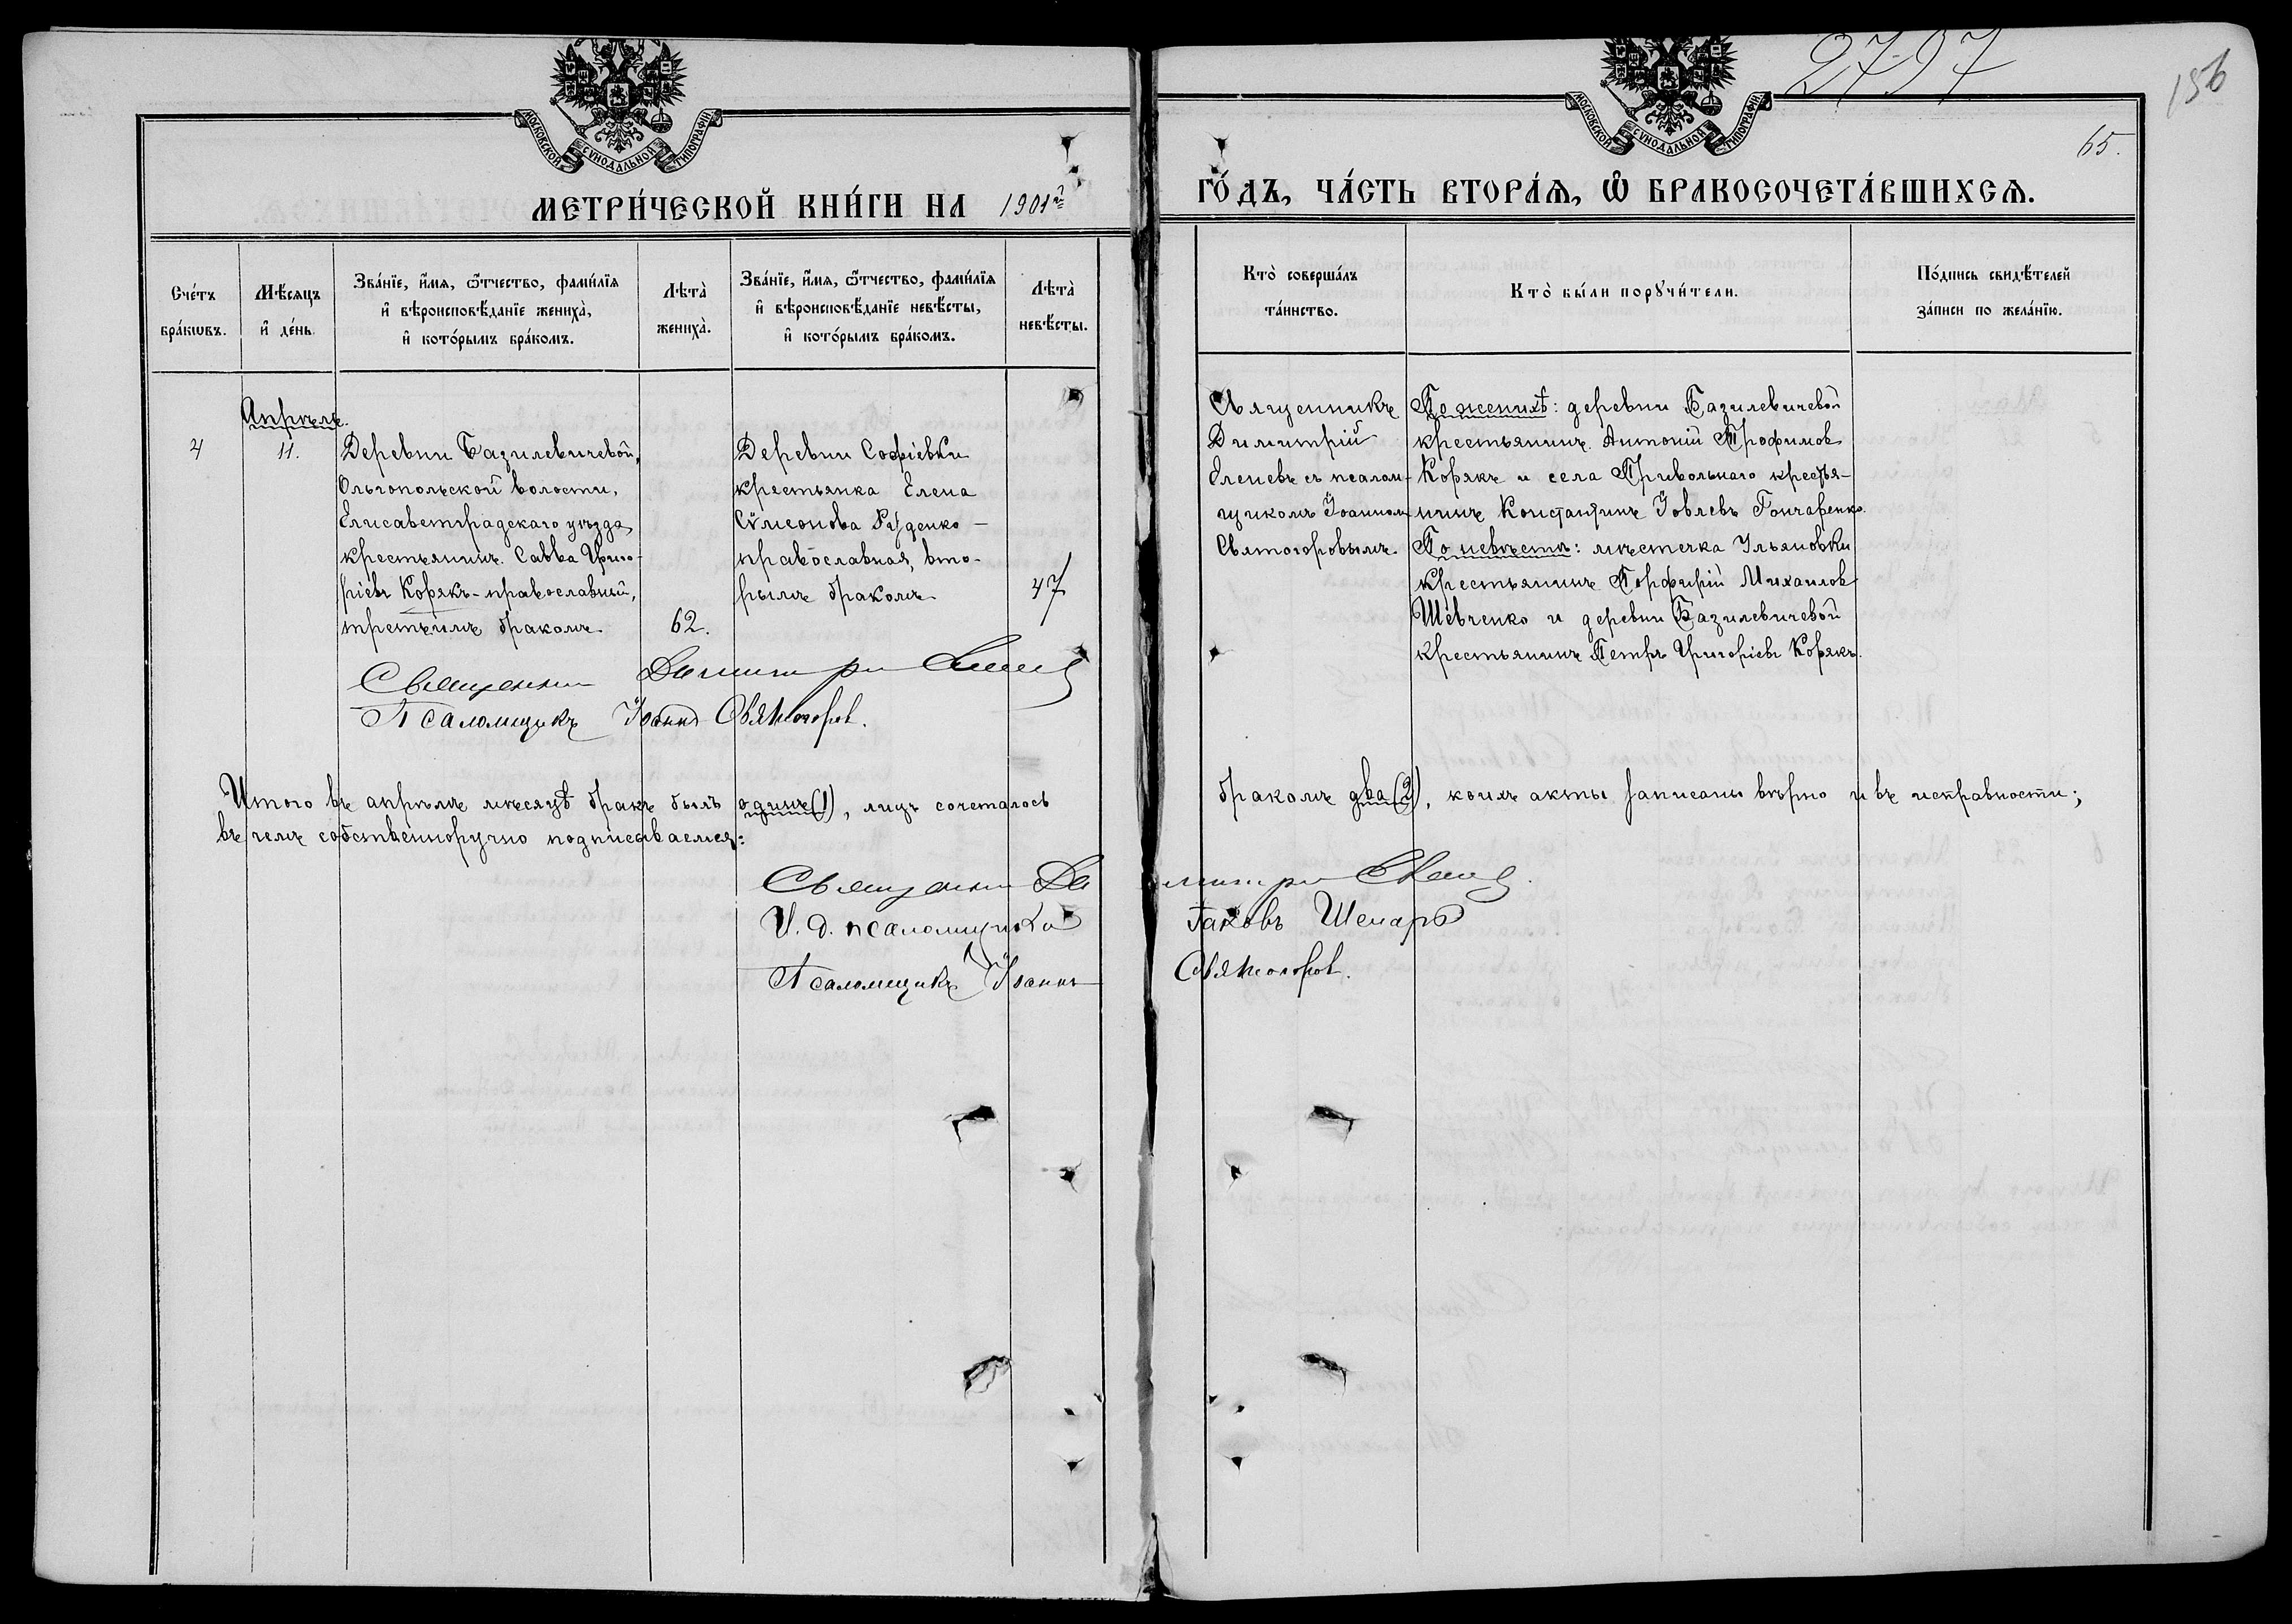 2797
156
65.
МОСКОВСКОЙ СУНОДАЛЬНОЙ ТИПОГРАФІИ
МОСКОВСКОЙ СУНОДАЛЬНОЙ ТИПОГРАФІИ
МЕТРИ́ЧЕСКОЙ КНИ́ГИ НА 1901й ГО́ДЪ, ЧА́СТЬ ВТОРА́Я, Ѿ БРАКОСОЧЕТА́ВШИХСЯ.
Сче́тъ
бра́кѡвъ.
Мѣ́сяцъ
и҆ де́нь.
Зва́нїе, и҆́мя, ѻ҆́тчество, фами́лїя
и҆ вѣроисповѣ́данїе жениха̀,
и҆ кото́рымъ бра́комъ.
Лѣта̀
жениха̀.
Зва́нїе, и҆́мя, ѻ҆́тчество, фами́лїя
и҆ вѣроисповѣ́данїе невѣ́сты,
и҆ кото́рымъ бра́комъ.
Лѣта̀
невѣ́сты.
Кто̀ соверша́лъ
та́инство.
Кто̀ бы́ли порꙋчи́тели.
По́дпись свидѣ́телей
за́писи по жела́нїю.
Апрѣль.
4
11.
Деревни Базилевичевой,
Ольгопольской волости,
Елисаветградскаго уѣзда,
крестьянинъ Савва Григо-
рiевъ Корякъ - православный,
третьимъ бракомъ
62.
Деревни Софiевки
крестьянка Елена
Сѵмеонова Руденко -
православная, вто-
рымъ бракомъ
47
Священникъ
Димитрiй
Еленевъ съ псалом-
щикомъ Іоанномъ
Святогоровымъ.
По женихѣ: деревни Базилевичевой
крестьянинъ Антонiй Трофимовъ
Корякъ и села Привольнаго крестья-
нинъ Константинъ Іовлевъ Гончаренко.
По невѣстѣ: мѣстечка Ульяновки
крестьянинъ Порфирiй Михаиловъ
Шевченко и деревни Базилевичевой
крестьянинъ Петръ Григорiевъ Корякъ.
Священникъ Димитрiй Еленевъ
Псаломщикъ Іоаннъ Святогоровъ.
Итого въ апрѣлѣ мѣсяцѣ бракъ былъ одинъ (1), лицъ сочеталось бракомъ два (2), коихъ акты записаны вѣрно и въ исправности;
въ чемъ собственноручно подписываемся:
Священникъ Димитрiй Еленевъ.
И. д. псаломщика Іаковъ
Псаломщикъ Іоаннъ Святогоровъ.